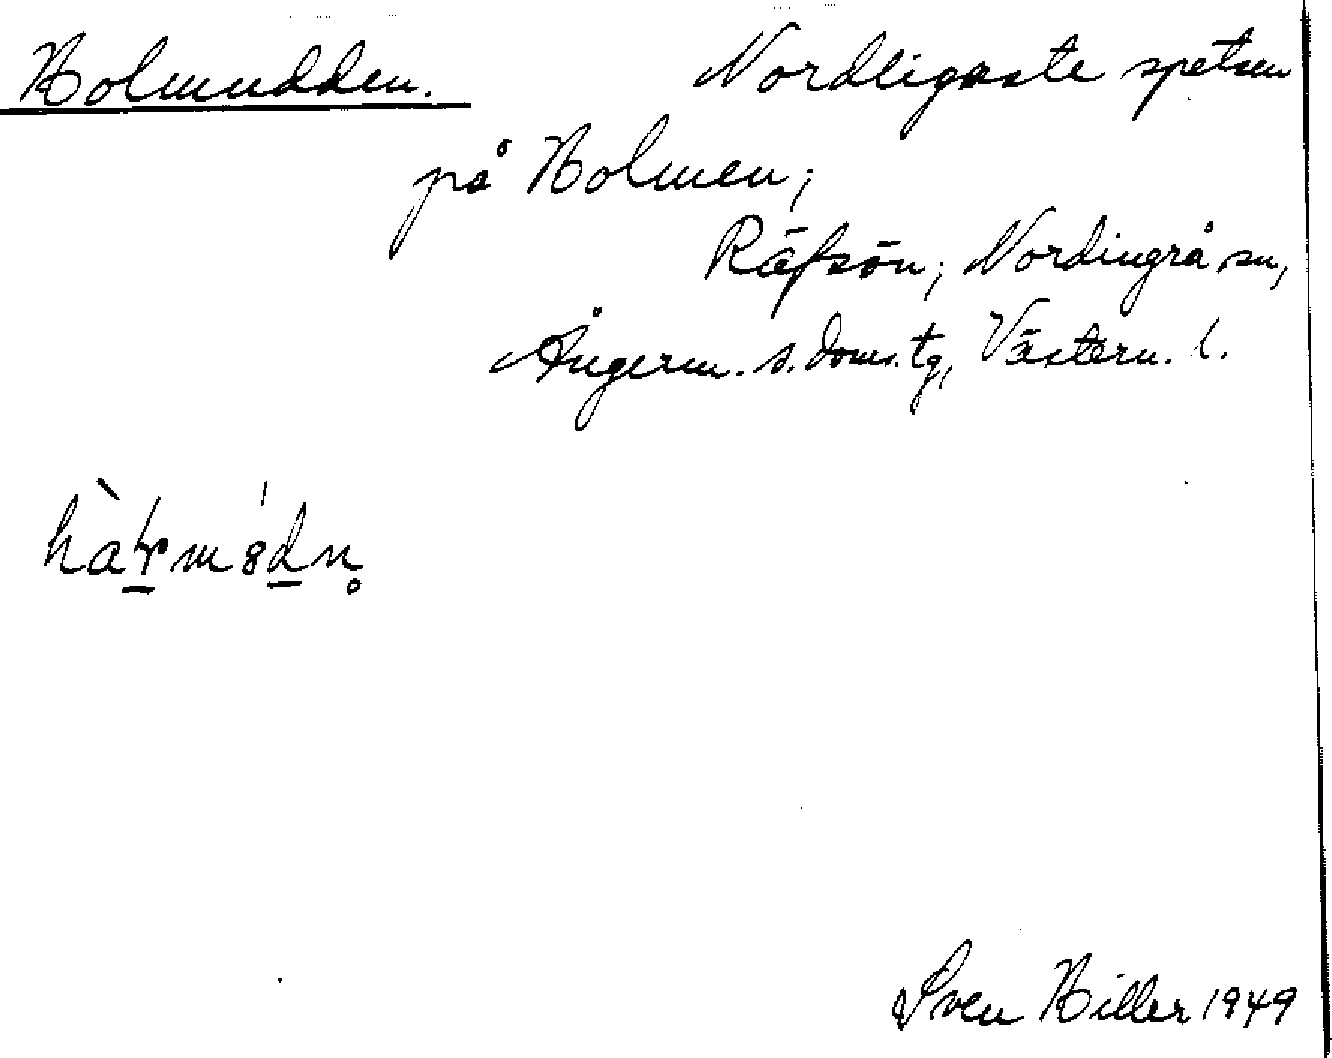 Holmudden. Nordligaste spetsen
på Holmen;
Räfsön, Nordingrå sn,
Ångerm. s. doms. tg, Västern. l.
Sven Hiller 1949